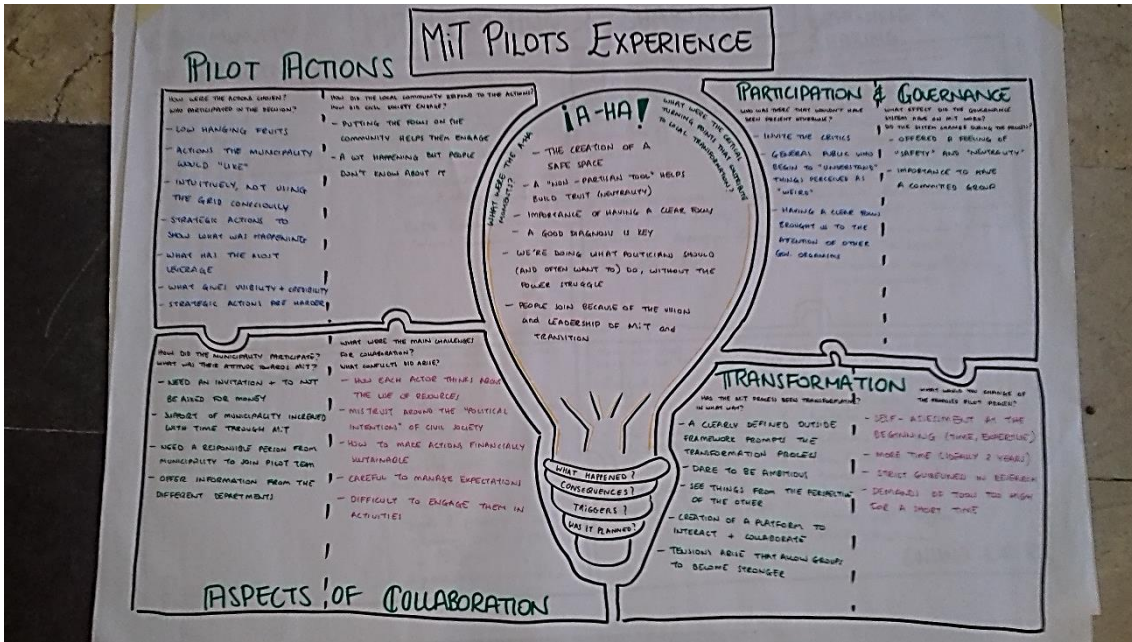 MiT PILOTS EXPERIENCE
PILOT ACTIONS
HOW WERE THE ACTIONS CHOSEN?
WHO PARTICIPATED IN THE DECISION?
- LOW HANGING FRUITS
- ACTIONS THE MUNICIPALITY
WOULD "LIKE"
- INTUITIVELY, NOT USING
THE GRID CONSCIOUSLY
- STRATEGIC ACTIONS TO
SHOW WHAT WAS HAPPENING
- WHAT HAS THE MOST
LEVERAGE
- WHAT GIVES VISIBILITY + CREDIBILITY
- STRATEGIC ACTIONS ARE HARDER
HOW DID THE LOCAL COMMUNITY RESPOND TO THE ACTIONS?
HOW DID CIVIL SOCIETY ENGAGE?
- PUTTING THE FOCUS ON THE
COMMUNITY HELPS THEM ENGAGE
- A LOT HAPPENING BUT PEOPLE
DON'T KNOW ABOUT IT
¡A-HA!
WHAT WERE THE A-HA
MOMENTS?
WHAT WERE THE CRITICAL
TURNING POINTS THAT CONTRIBUTE
TO LOCAL TRANSFORMATION?
- THE CREATION OF A
SAFE SPACE
- A "NON-PARTISAN TOOL" HELPS
BUILD TRUST (NEUTRALITY)
- IMPORTANCE OF HAVING A CLEAR FOCUS
- A GOOD DIAGNOSIS IS KEY
- WE'RE DOING WHAT POLITICIANS SHOULD
(AND OFTEN WANT TO) DO, WITHOUT THE
POWER STRUGGLE
- PEOPLE JOIN BECAUSE OF THE VISION
and LEADERSHIP OF MiT and
TRANSITION
WHAT HAPPENED?
CONSEQUENCES?
TRIGGERS?
WAS IT PLANNED?
PARTICIPATION & GOVERNANCE
WHO WAS THERE THAT WOULDN'T HAVE
BEEN PRESENT OTHERWISE?
- INVITE THE CRITICS
- GENERAL PUBLIC WHO
BEGIN TO "UNDERSTAND"
THINGS PERCEIVED AS
"WEIRD"
- HAVING A CLEAR FOCUS
BROUGHT US TO THE
ATTENTION OF OTHER
GOV. ORGANISMS
WHAT EFFECT DID THE GOVERNANCE
SYSTEM HAVE ON MiT WORK?
DID THE SYSTEM CHANGE DURING THE PROCESS?
- OFFERED A FEELING OF
"SAFETY" AND "NEUTRALITY"
- IMPORTANCE TO HAVE
A COMMITTED GROUP
HOW DID THE MUNICIPALITY PARTICIPATE?
WHAT WAS THEIR ATTITUDE TOWARDS MiT?
- NEED AN INVITATION + TO NOT
BE ASKED FOR MONEY
- SUPPORT OF MUNICIPALITY INCREASED
WITH TIME THROUGH MiT
- NEED A RESPONSIBLE PERSON FROM
MUNICIPALITY TO JOIN PILOT TEAM
- OFFER INFORMATION FROM THE
DIFFERENT DEPARTMENTS
WHAT WERE THE MAIN CHALLENGES
FOR COLLABORATION?
WHAT CONFLICTS DID ARISE?
- HOW EACH ACTOR THINGS ABOUT
THE USE OF RESOURCES
- MISTRUST AROUND THE "POLITICAL
INTENTION" OF CIVIL SOCIETY
- HOW TO MAKE ACTIONS FINANCIALLY
SUSTAINABLE
- CAREFUL TO MANAGE EXPECTATIONS
- DIFFICULT TO ENGAGE THEM IN
ACTIVITIES
ASPECTS OF COLLABORATION
TRANSFORMATION
HAS THE MiT PROCESS BEEN TRANSFORMATIVE?
IN WHAT WAY?
- A CLEARLY DEFINED OUTSIDE
FRAMEWORK PROMPTS THE
TRANSFORMATION PROCESS
- DARE TO BE AMBITIOUS
- SEE THINGS FROM THE PERSPECTIVE
OF THE OTHER
- CREATION OF A PLATFORM TO
INTERACT + COLLABORATE
- TENSIONS ARISE THAT ALLOW GROUPS
TO BECOME STRONGER
WHAT WOULD YOU CHANGE OF
THE PROPOSED PILOT PROCESS?
- SELF-ASSESSMENT AT THE
BEGINNING (TIME, EXPERTISE)
- MORE TIME (IDEALLY 2 YEARS)
- STRICT GUIDELINES IN RESEARCH
- DEMANDS OF TOO HIGH
FOR A SHORT TIME